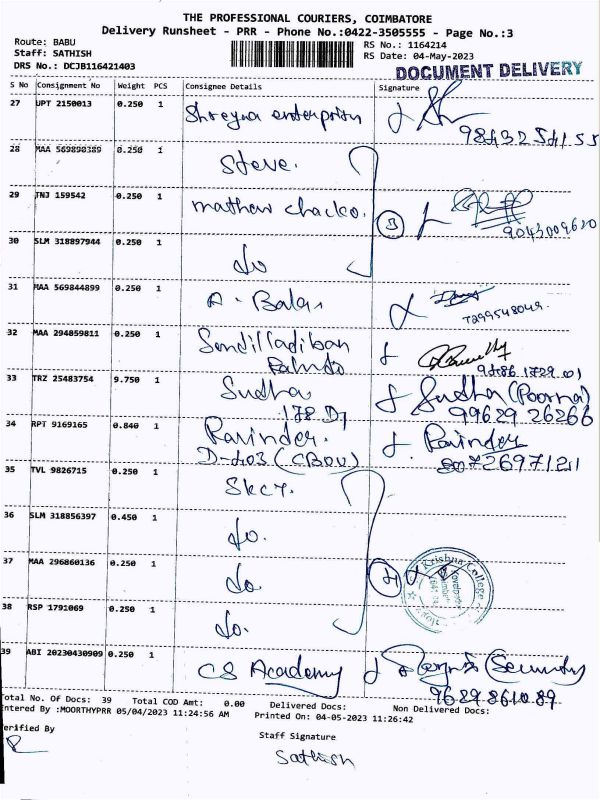 THE PROFESSIONAL COURIERS, COIMBATORE
Delivery Runsheet - PRR - Phone No.:0422-3505555 - Page No.:3
Route: BABU
Staff: SATHISH
DRS No.: DCJB116421403
RS No.: 1164214
RS Date: 04-May-2023
DOCUMENT DELIVERY
S No Consignment No Weight PCS Consignee Details Signature
27 UPT 2150013 0.250 1 Shreyna enterprises 98432 54155
28 MAA 569890389 0.250 1 Steve.
29 TNJ 159542 0.250 1 mathew chacko. 3 9043009620
30 SLM 318897944 0.250 1 do
31 MAA 569844899 0.250 1 A. Balan 7299548049
32 MAA 294859811 0.250 1 Sendilladiban
33 TRZ 25483754 9.750 1 Sudha Sudha (Poorna)
178 D7 99629 26266
34 RPT 9169165 0.840 1 Ravinder. Ravinder
D-403 (CBOU) 8072697121
35 TVL 9826715 0.250 1 Skct.
36 SLM 318856397 0.450 1 do.
37 MAA 296860136 0.250 1 do. 4 Krishna College
38 RSP 1791069 0.250 1 do.
39 ABI 20230430909 0.250 1 CS Academy (Security
9629861089
Total No. Of Docs: 39 Total COD Amt: 0.00 Delivered Docs: Non Delivered Docs:
Entered By :MOORTHYPRR 05/04/2023 11:24:56 AM Printed On: 04-05-2023 11:26:42
Verified By
Staff Signature
Sathish